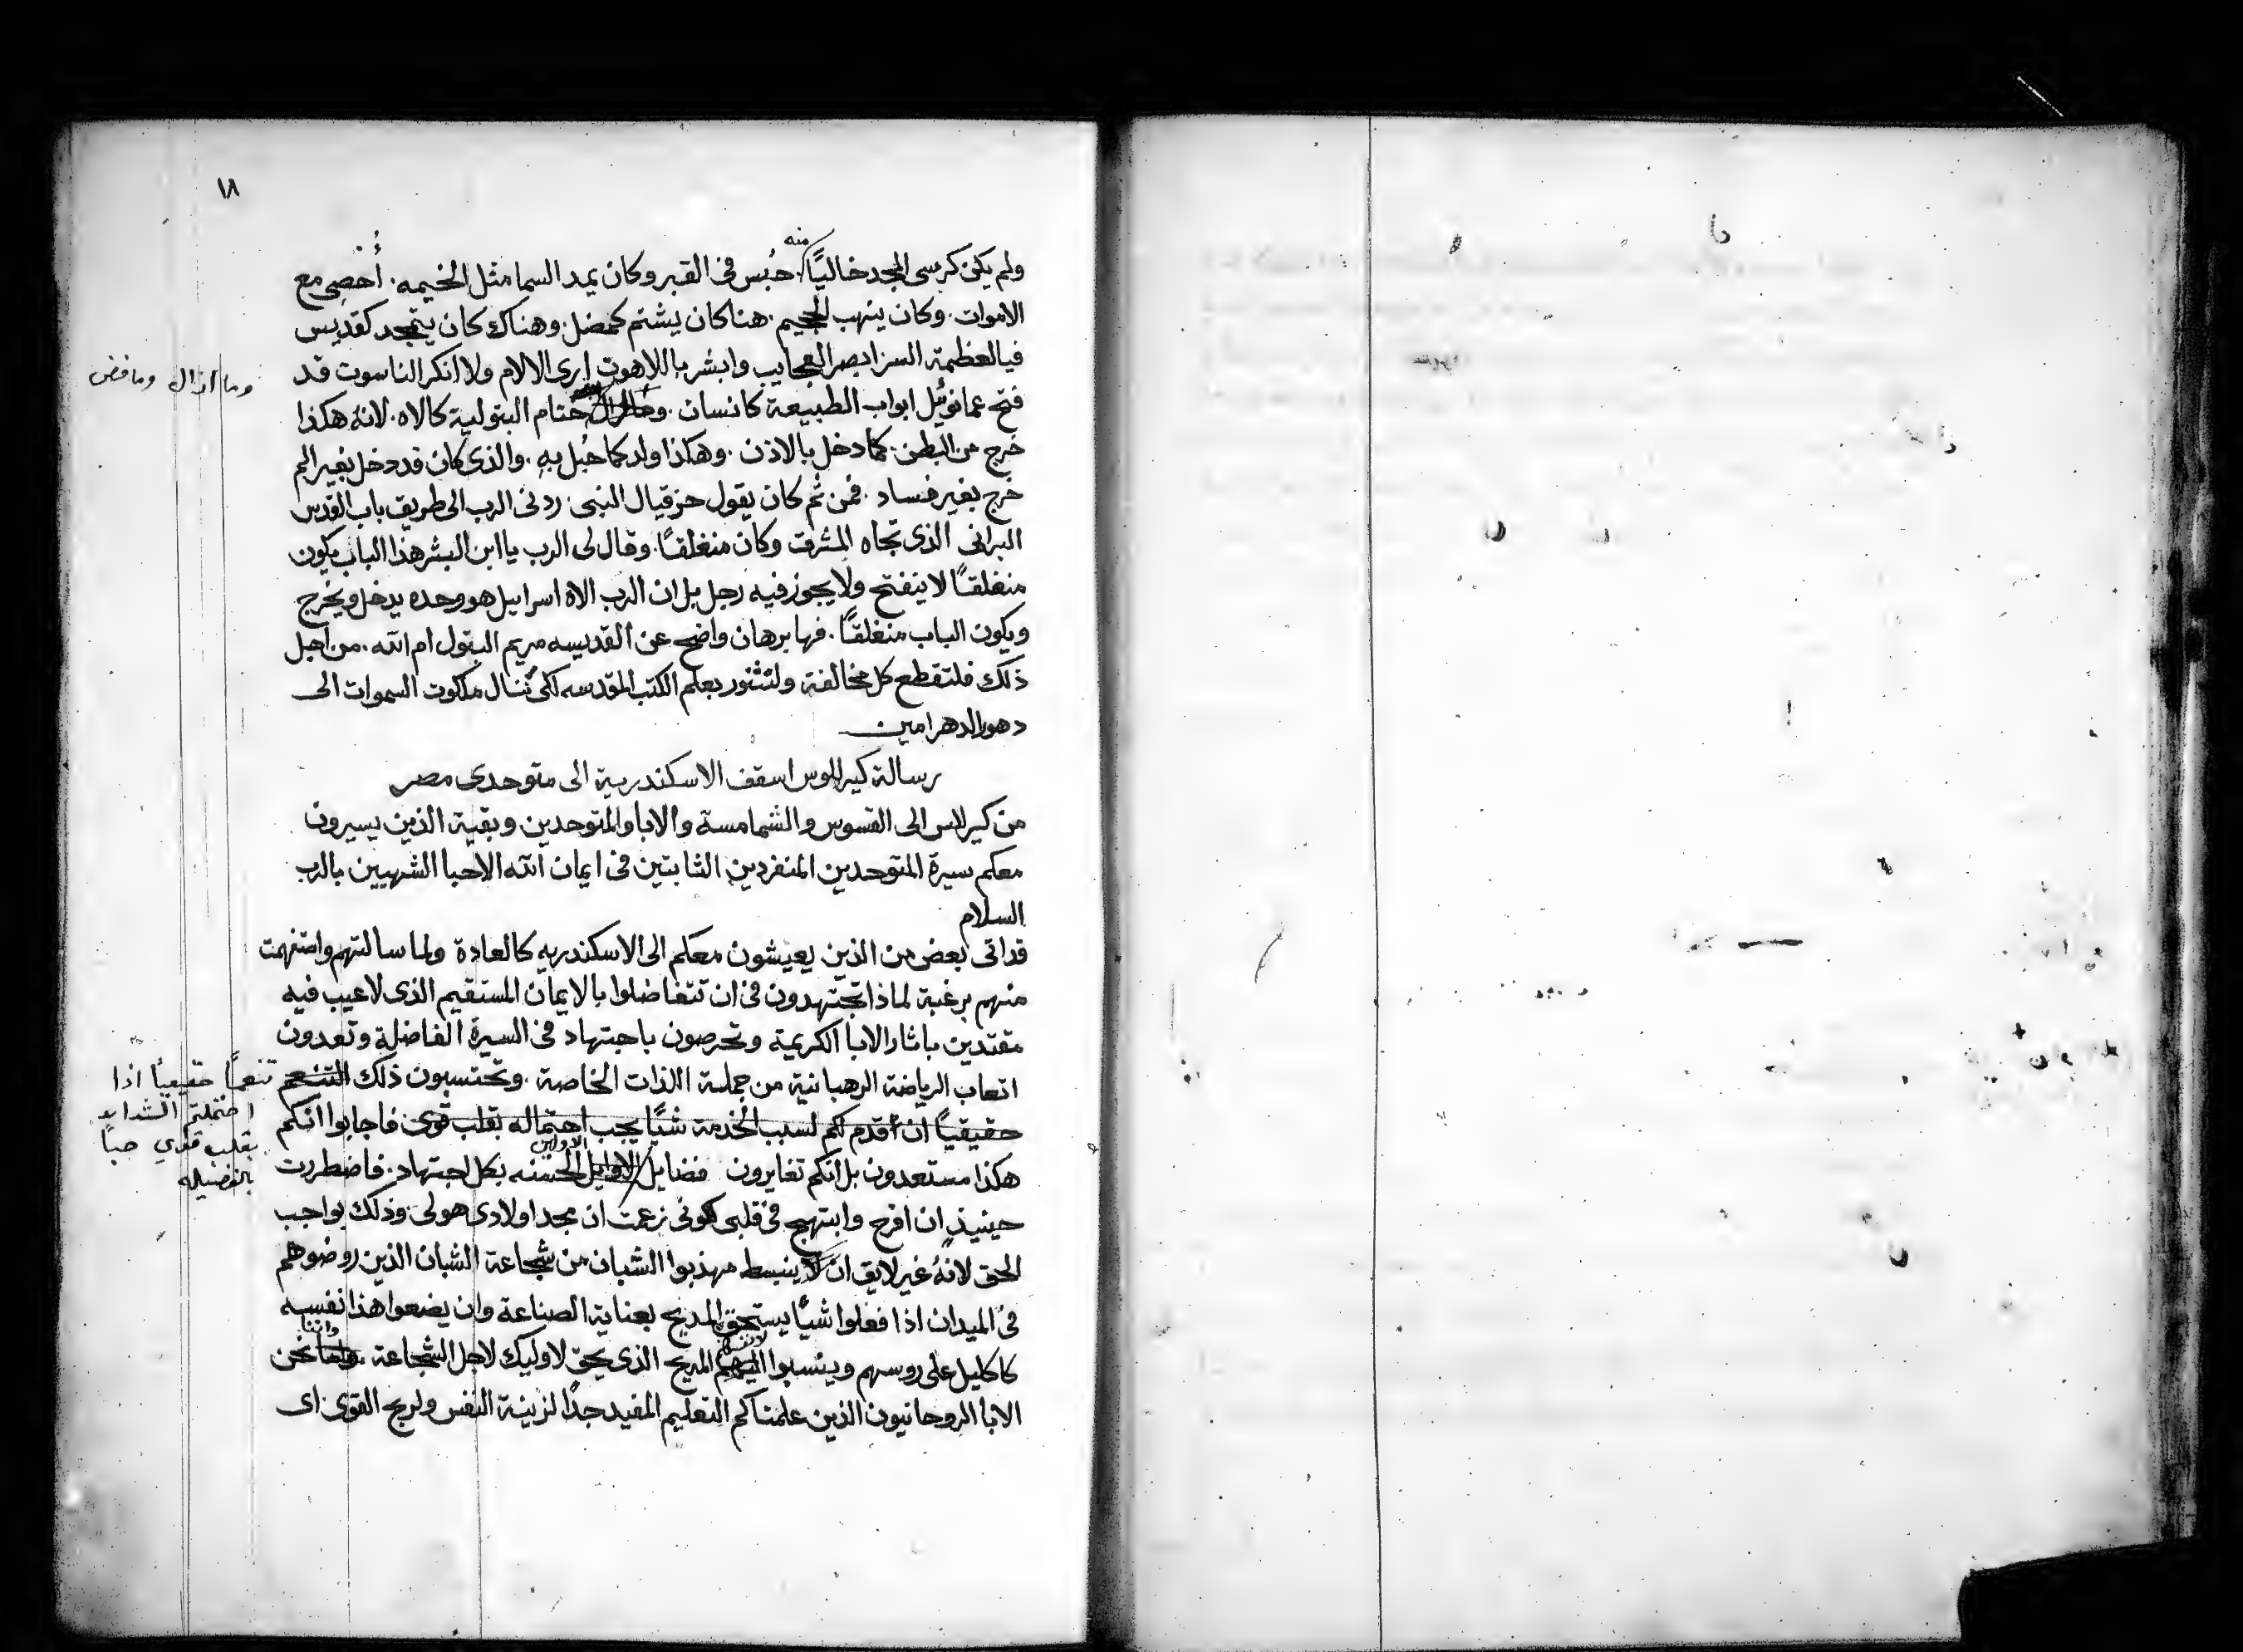 ١٨
ولم يكن كرسى المجد خاليًا منه. حُبس فى القبر وكان يمد السما مثل الخيمه. أُحصِى مع
الاموات. وكان ينهب الجحيم. هنا كان يشتم كمضل. وهناك كان يتمجد كقديس
فيا لعظمة السر ابصر العجايب وابشر باللاهوت ارى الالام ولا انكر الناسوت قد
وما ازال وما فض
فتح عمانوئيل ابواب الطبيعة كانسان. ختام البتولية كالاه. لانهُ هكذا
خرج من البطن. كما دخل بالاذن. وهكذا ولد كما حُبل بهِ. والذى كان قد دخل بغير الم
خرج بغير فساد. فمن ثم كان يقول حزقيال النبى ردنى الرب الى طريق باب القدس
البرانى الذى تجاه المشرق وكان منغلقًا. وقال لى الرب يا ابن البشر هذا الباب يكون
منغلقًا لا ينفتح ولا يجوز فيه رجل بل ان الرب الاه اسراييل هو وحده يدخل ويخرج
ويكون الباب منغلقًا. فها برهان واضح عن القديسه مريم البتول ام الله. من اجل
ذلك فلتقطع كل مخالفة ولنتنور بعلم الكتب المقدسه لكى ننال ملكوت السموات الى
دهور الدهر امين
رسالة كيرللوس اسقف الاسكندرية الى متوحدى مصر
من كيرللس الى القسوس والشمامسة والابا والمتوحدين وبقية الذين يسيرون
معكم سيرة المتوحدين المنفردين الثابتين فى ايمان الله الاحبا الشهيين بالرب
السلام
قد اتى بعض من الذين يعيشون معكم الى الاسكندريه كالعادة ولما سالتهم واستفهمت
منهم برغبة لماذا تجتهدون فى ان تتفاضلوا بالايمان المستقيم الذى لا عيب فيه
مقتدين باثار الابا الكريمة وتحرصون باجتهاد فى السيرة الفاضلة وتعدون
اتعاب الرياضة الرهبانية من جملة اللذات الخاصة. وتحتسبون ذلك التنعم
تنعمًا حقيقيًا اذا
احتملتم الشدايد
بقلب قوي حبًا
بالفضيله
حقيقيًا ان أقدم لكم لسبب الخدمة شيًا يجب احتماله بقلب قوى فاجابوا انكم
هكذا مستعدون بل انكم تغايرون فضايل الاوايل الاولين الحسنه بكل اجتهاد. فاضطررت
حينيذٍ ان افرح وابتهج فى قلبى كونى زعمت ان مجد اولادى هو لى. وذلك بواجب
الحق لانهُ غير لايق ان لا ينبسط مهذبوا الشبان من شجاعة الشبان الذين روضوهم
فى الميدان اذا فعلوا شيًا يستحق المديح بعناية الصناعة وان يضعوا هذا نفسه
كاكليل على روسهم وينسبوا اليهم المديح الذى يحق لاوليك لاجل الشجاعة. واننا نحن
الابا الروحانيون الذين علمناكم التعليم المفيد جدًا لزينة النفس ولربح القوى اى